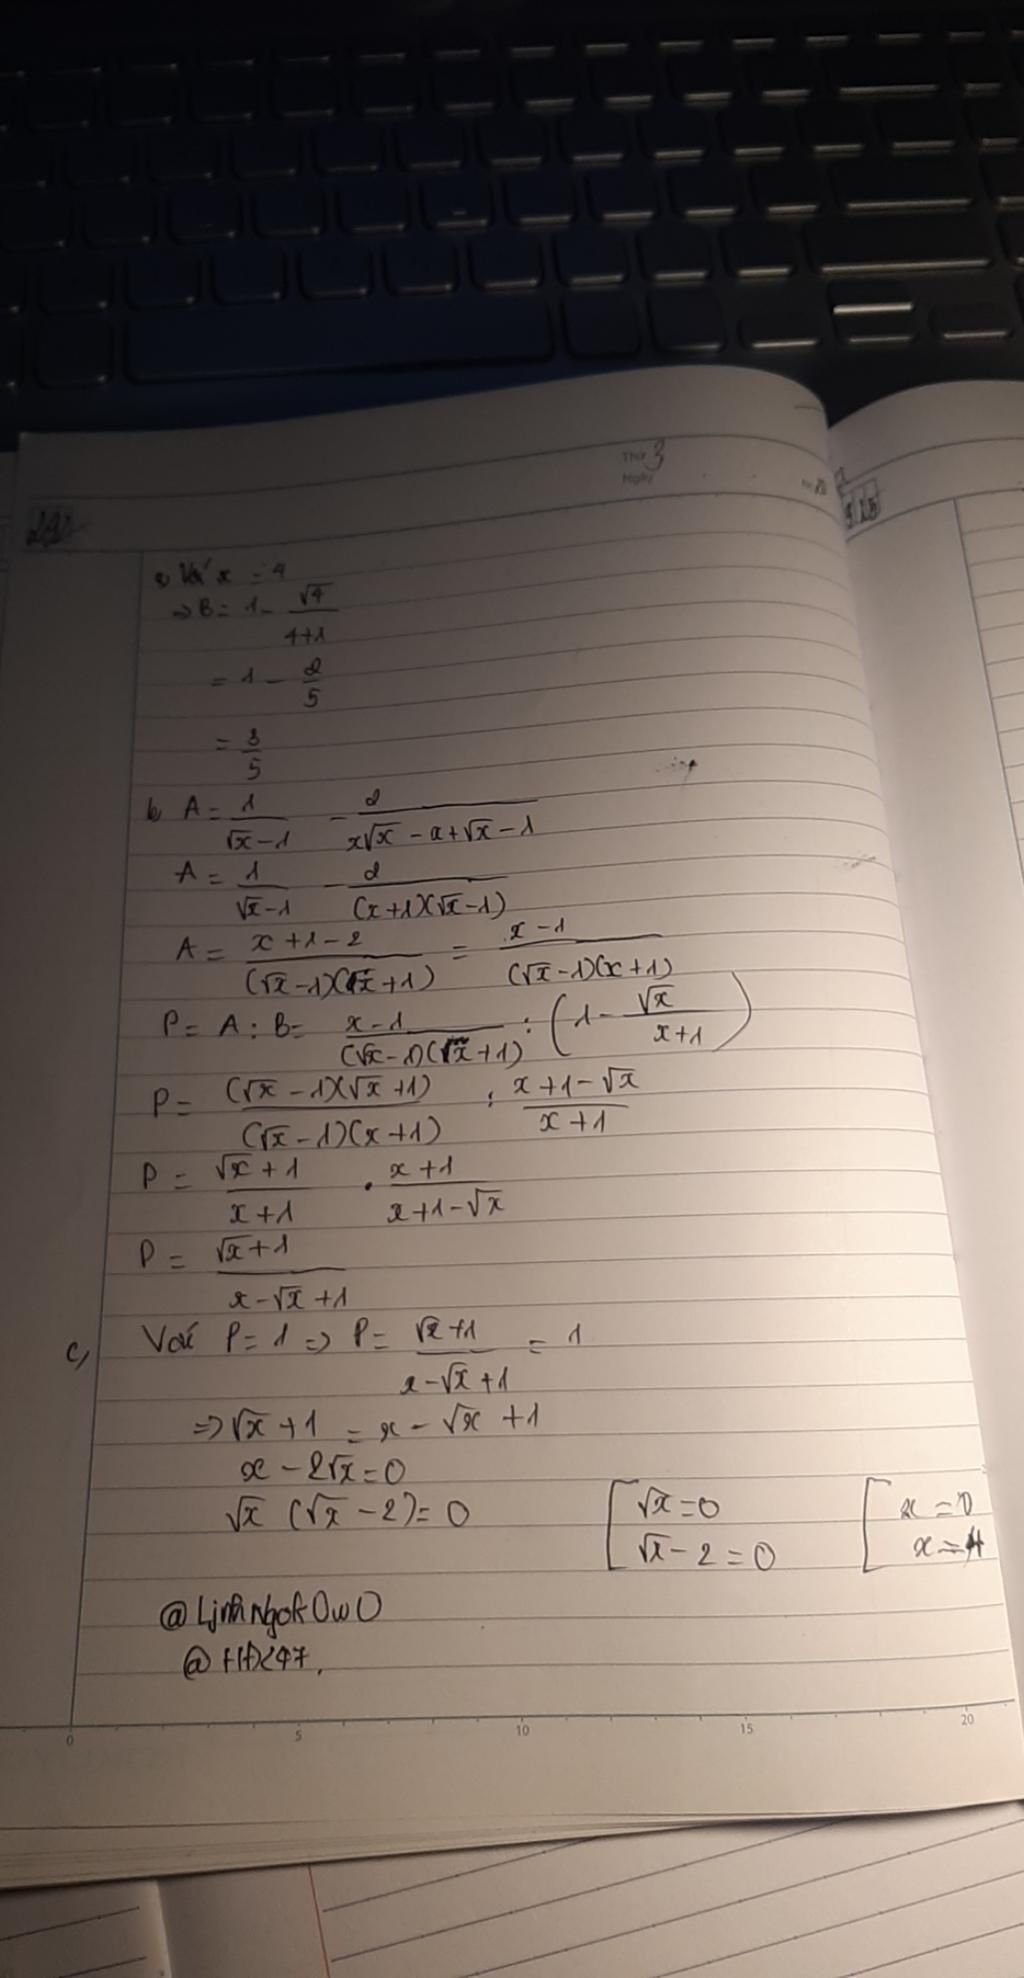 Thứ 3
Ngày
a, Với x = 4
⇒ B = 1 - √4 / (4+1)
= 1 - 2/5
= 3/5
b, A = 1/(√x - 1) - 2/(x√x - x + √x - 1)
A = 1/(√x - 1) - 2/((x+1)(√x - 1))
A = (x + 1 - 2)/((√x - 1)(x + 1)) = (x - 1)/((√x - 1)(x + 1))
P = A : B = (x - 1)/((√x - 1)(x + 1)) : (1 - √x/(x+1))
P = ((√x - 1)(√x + 1))/((√x - 1)(x + 1)) : (x + 1 - √x)/(x + 1)
P = (√x + 1)/(x + 1) . (x + 1)/(x + 1 - √x)
P = (√x + 1)/(x - √x + 1)
c, Với P = 1 ⇒ P = (√x + 1)/(x - √x + 1) = 1
⇒ √x + 1 = x - √x + 1
x - 2√x = 0
√x (√x - 2) = 0 [ √x = 0 [ x = 0
√x - 2 = 0 x = 4
@LjnhNgokOwO
0 5 10 15 20